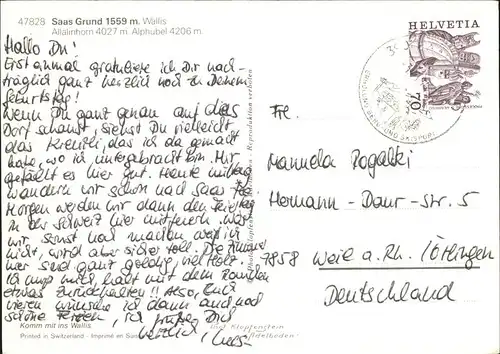 47828 Saas Grund 1559 m. Wallis
Allalinhorn 4027 m. Alphubel 4206 m.
Hallo Du!
Erst einmal gratuliere ich Dir nach-
träglich ganz herzlich noch zu Deinem
Geburtstag!
Wenn Du ganz genau auf das
Dorf schaust, siehst Du vielleicht
das Kreuzli, das ich da gemacht
habe, wo ich untergebracht bin. Mir
gefällt es hier gut. Heute mittag
wandern wir schon nach Saas Fee.
Morgen werden wir dann den Feiertag
in der Schweiz hier mitfeiern. Was
wir sonst noch machen weiß ich
nicht, wird aber sicher toll. Die Zimmer
hier sind ganz goldig, viel Holz.
Ich muß mich halt mit dem
etwas zurückhalten! Also, Euch
vieren wünsche ich dann auch noch
schöne Ferien, ich grüße Dich
herzlich,
Komm mit ins Wallis
Printed in Switzerland - Imprimé en Suisse
Klopfenstein
Adelboden
Reproduktion verboten
HELVETIA
70
Frl.
Manuela Rogalski
Hermann - Daur - str. 5
7858 Weil a. Rh. / Ötlingen
Deutschland